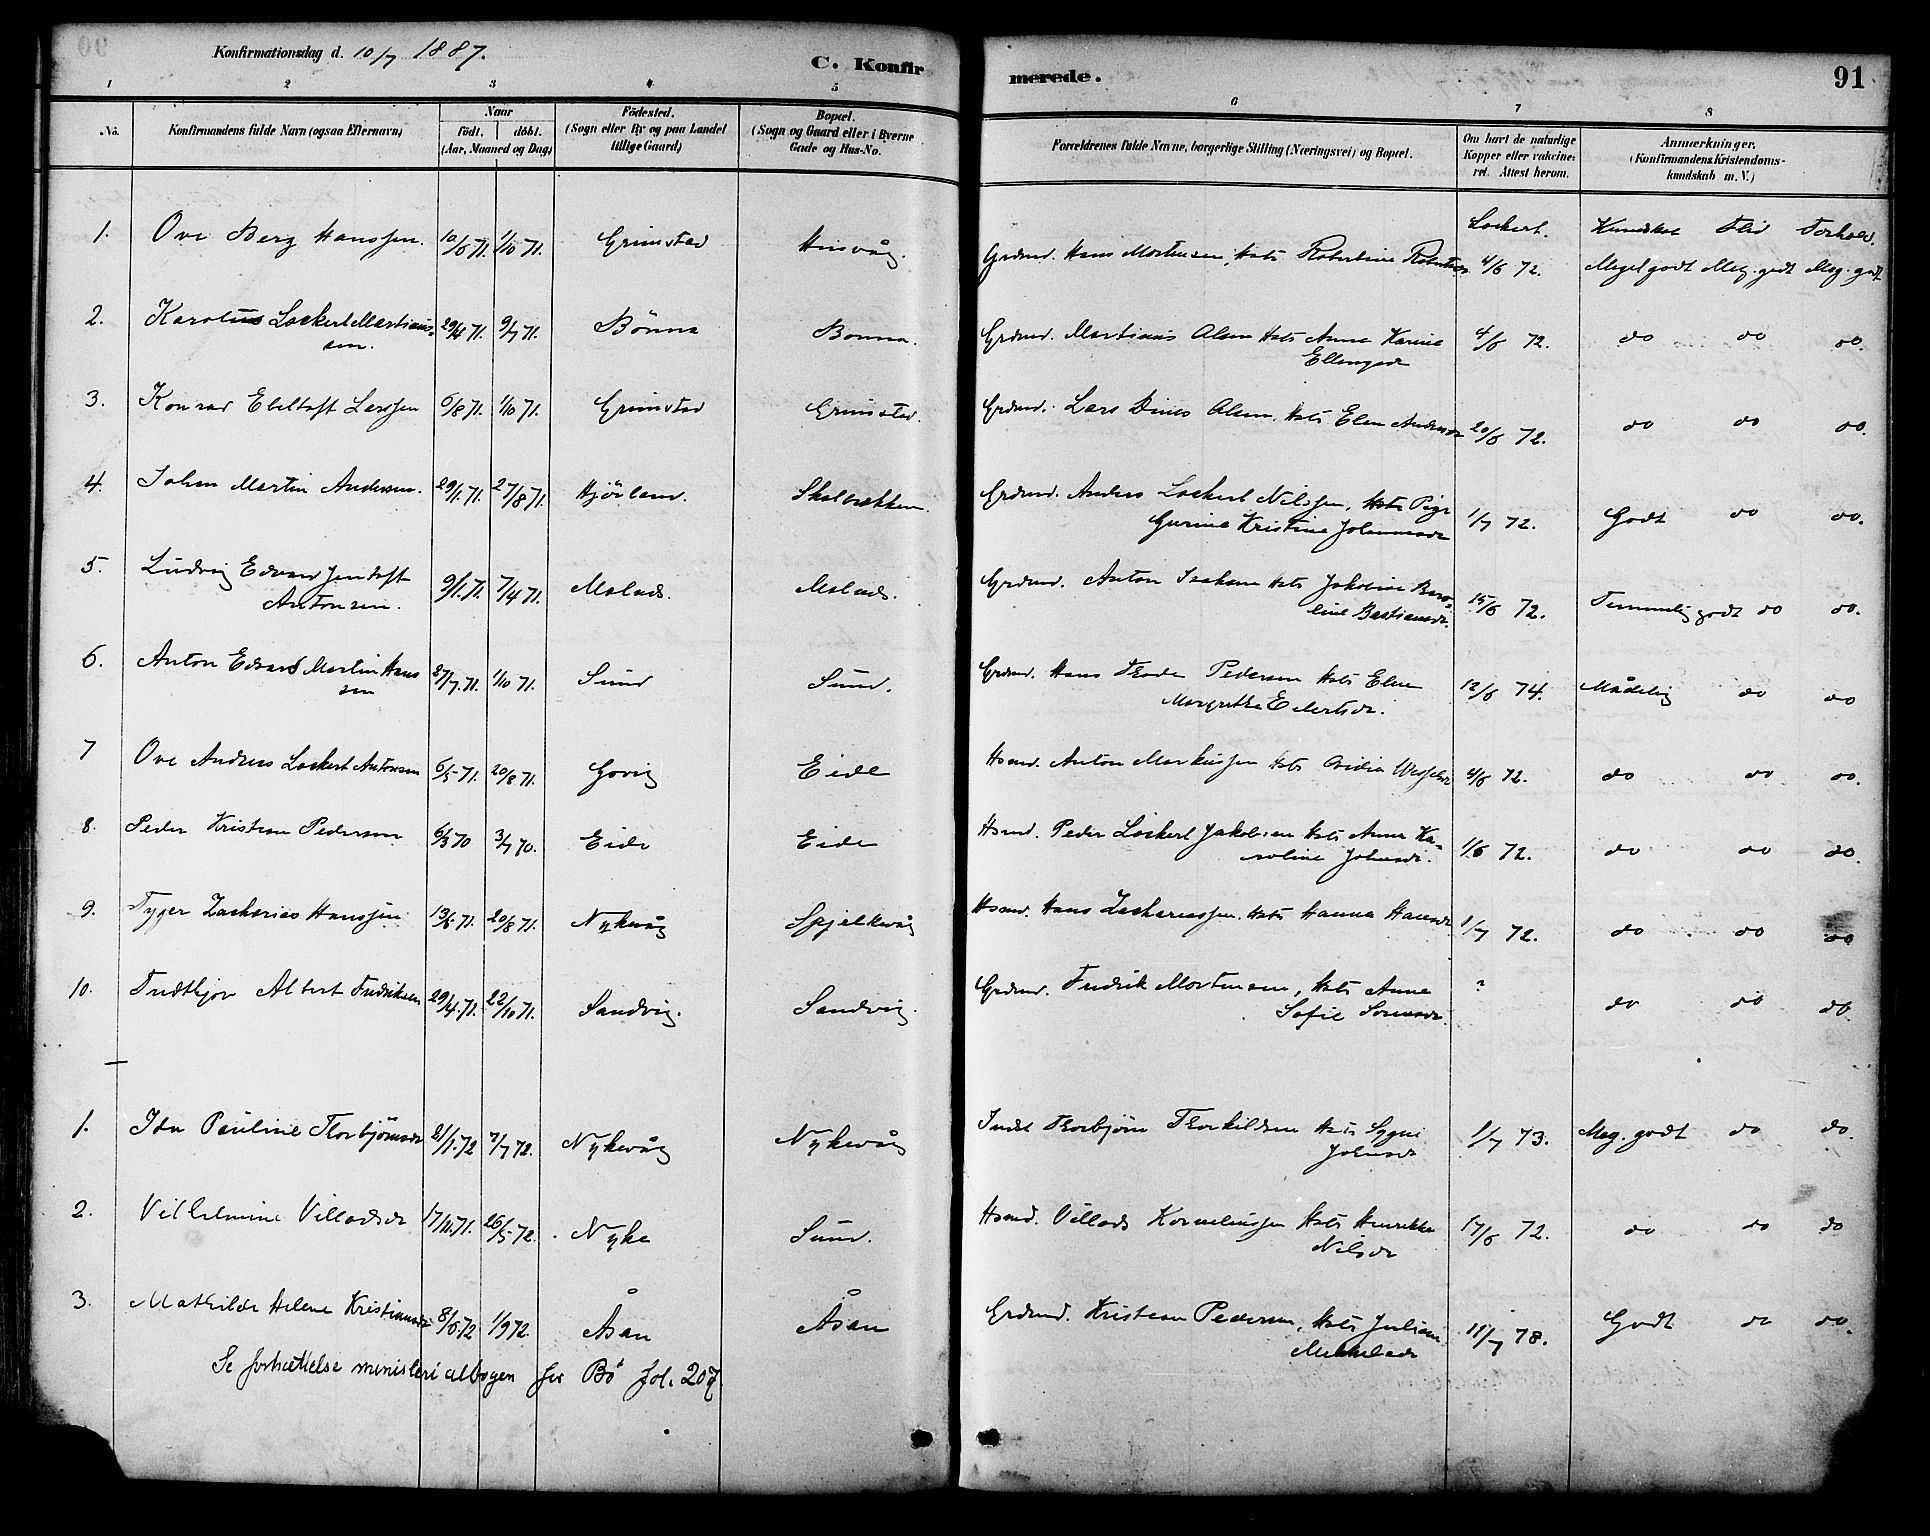 Konfirmationsdag d. 10/7 1887.
C. Konfirmerede.
91
1 2 3 4 5 6 7 8
No.
Konfirmandens fulde Navn (ogsaa Efternavn)
Naar
födt. döbt.
(Aar, Maaned og Dag)
Födested.
(Sogn eller By og paa Landet
tillige Gaard)
Bopæl.
(Sogn og Gaard eller i Byerne
Gade og Hus-No.
Forældrenes fulde Navne, borgerlige Stilling (Næringsvei) og Bopæl.
Om havt de naturlige
Kopper eller vakcine-
ret. Attest herom.
Anmærkninger.
(Konfirmandens Kristendoms-
kundskab m. V.)
Lockert. Kundskab Flid Forhold.
1. Ove Berg Hanssen. 10/6 71. 1/10 71. Grimstad Husvåg. Grdmd. Hans Mortensen, Hst. Robertine 4/6 72. Meget godt Meg. godt Meg. godt
2. Karolus Lockert Martinus-
sen. 29/4 71. 9/7 71. Bönna Bönna. Grdmd. Martinus Olsen Hst. Anna Karina
4/6 72. do do do.
3. Konrad Ebeltoft Larssen 6/8 71. 1/10 71. Grimstad Grimstad. Grdmd. Lars Olsen, Hst. Elen Andersdr 20/6 72. do do do.
4. Johan Martin Andersen. 29/1 71. 27/8 71. Hjörland. Skalbrekken. Grdmd. Anders Lockert Nilssen, Hst. Pige
Gurine Kristine Johannesdr 1/7 72. Godt do do.
5. Ludvig Edvard Jentoft
Antonsen. 9/1 71. 7/4 71. Malnes. Malnes. Grdmd. Anton Isaksen Hst. Jakobine Bero-
line Bastiansdr. 15/6 72. Temmelig godt do do.
6. Anton Edvard Martin Hans
sen 27/7 71. 1/10 71. Sund Sund. Grdmd. Hans Pedersen Hst. Elen
Margrethe Eilertsdr. 12/6 74. Mådelig do do
7 Ove Andreas Lockert Antonsen 6/5 71. 20/8 71. Govig Eide Hsmd. Anton Markussen Hst. 4/6 72. do do do.
8. Peder Kristian Pedersen 6/3 70 3/7 70. Eide Eide Hsmd. Peder Lockert Jakobsen Hst. Anna Ka-
roline Johnsdr. 1/6 72. do do do.
9. Tyger Zacharias Hanssen 13/6 71. 20/8 71. Nykvåg Spjelkevåg Hsmd. Hans Zachariassen. Hst. Hanna Hansdr 1/7 72. do do do
10. Fridthjov Albert Fredriksen 29/4 71. 22/10 71. Sandvig. Sandvig. Grdmd. Fredrik Mortensen, Hst. Anne
Sofie Sörensdr. ? do do do.
1. Ida Pauline Thorbjörnsdr 21/1 72 7/7 72. Nykevåg Nykevåg Indst Thorbjörn Thorkildsen Hst. Sygni
Johnsdr 1/7 73. Meg. godt do do.
2. Vilhelmine Villadsdr 17/10 71. 26/5 72. Nyke Sund. Hsmd. Villads Korneliussen Hst. Henrikke
Nilsdr 17/6 72. do do do
3. Mathilde Helene Kristiansdr 8/6 72 1/9 72. Åsan Åsan Grdmd. Kristian Pedersen, Hst. Juliane
Mikkelsdr 11/7 78. Godt do do.
Se fortsættelse ministeri albogen for Bö fol. 207